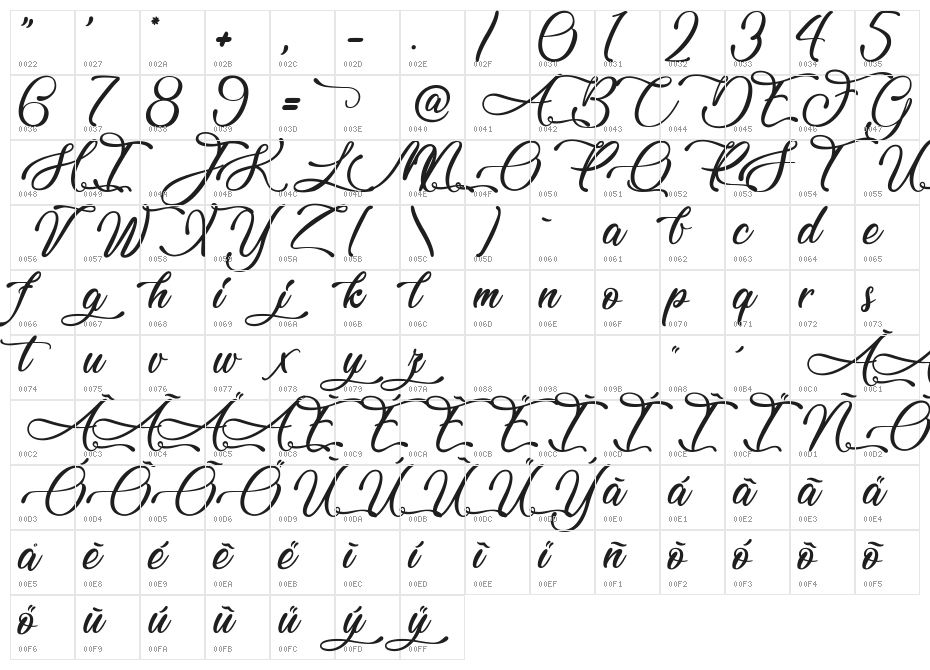 " ' * + , - . / 0 1 2 3 4 5
0022 0027 002A 002B 002C 002D 002E 002F 0030 0031 0032 0033 0034 0035
6 7 8 9 = @ A B C D E F G
0036 0037 0038 0039 003D 003E 0040 0041 0042 0043 0044 0045 0046 0047
H I J K L M N O P Q R S T U
0048 0049 004A 004B 004C 004D 004E 004F 0050 0051 0052 0053 0054 0055
V W X Y Z ( \ ) ` a b c d e
0056 0057 0058 0059 005A 005B 005C 005D 0060 0061 0062 0063 0064 0065
f g h i j k l m n o p q r s
0066 0067 0068 0069 006A 006B 006C 006D 006E 006F 0070 0071 0072 0073
t u v w x y z ¨ ´ À Á
0074 0075 0076 0077 0078 0079 007A 0088 0098 009B 00A8 00B4 00C0 00C1
Â Ã Ä Å È É Ê Ë Ì Í Î Ï Ñ Ò
00C2 00C3 00C4 00C5 00C8 00C9 00CA 00CB 00CC 00CD 00CE 00CF 00D1 00D2
Ó Ô Õ Ö Ù Ú Û Ü Ý à á â ã ä
00D3 00D4 00D5 00D6 00D9 00DA 00DB 00DC 00DD 00E0 00E1 00E2 00E3 00E4
å è é ê ë ì í î ï ñ ò ó ô õ
00E5 00E8 00E9 00EA 00EB 00EC 00ED 00EE 00EF 00F1 00F2 00F3 00F4 00F5
ö ù ú û ü ý ÿ
00F6 00F9 00FA 00FB 00FC 00FD 00FF